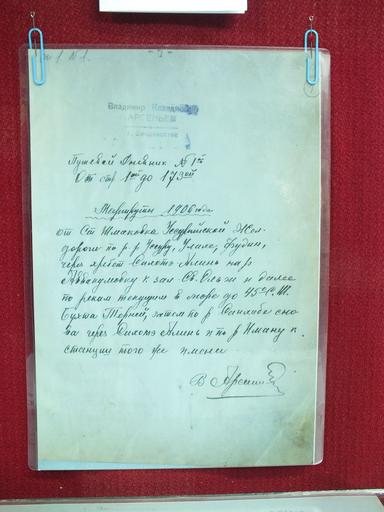 № 1.
Владимир Клавдиевич
АРСЕНЬЕВ
г. Владивосток
Путевой Дневник № 1й
От стр 1ой до 173ей
Маршруты 1906 года
от Ст Шмаковка Уссурийской Жел-
дороги по р. р Уссуру, Улахе, Фудзин,
через хребет Сихотэ Алинь на р
Аввакумовку к зал Св. Ольги и далее
по рекам текущим в море до 45° С. Ш.
Бухта Терней, затем по р Санхобе сно
ва через Сихотэ Алинь и по р Иману к
станции того же имени
В Арсеньев